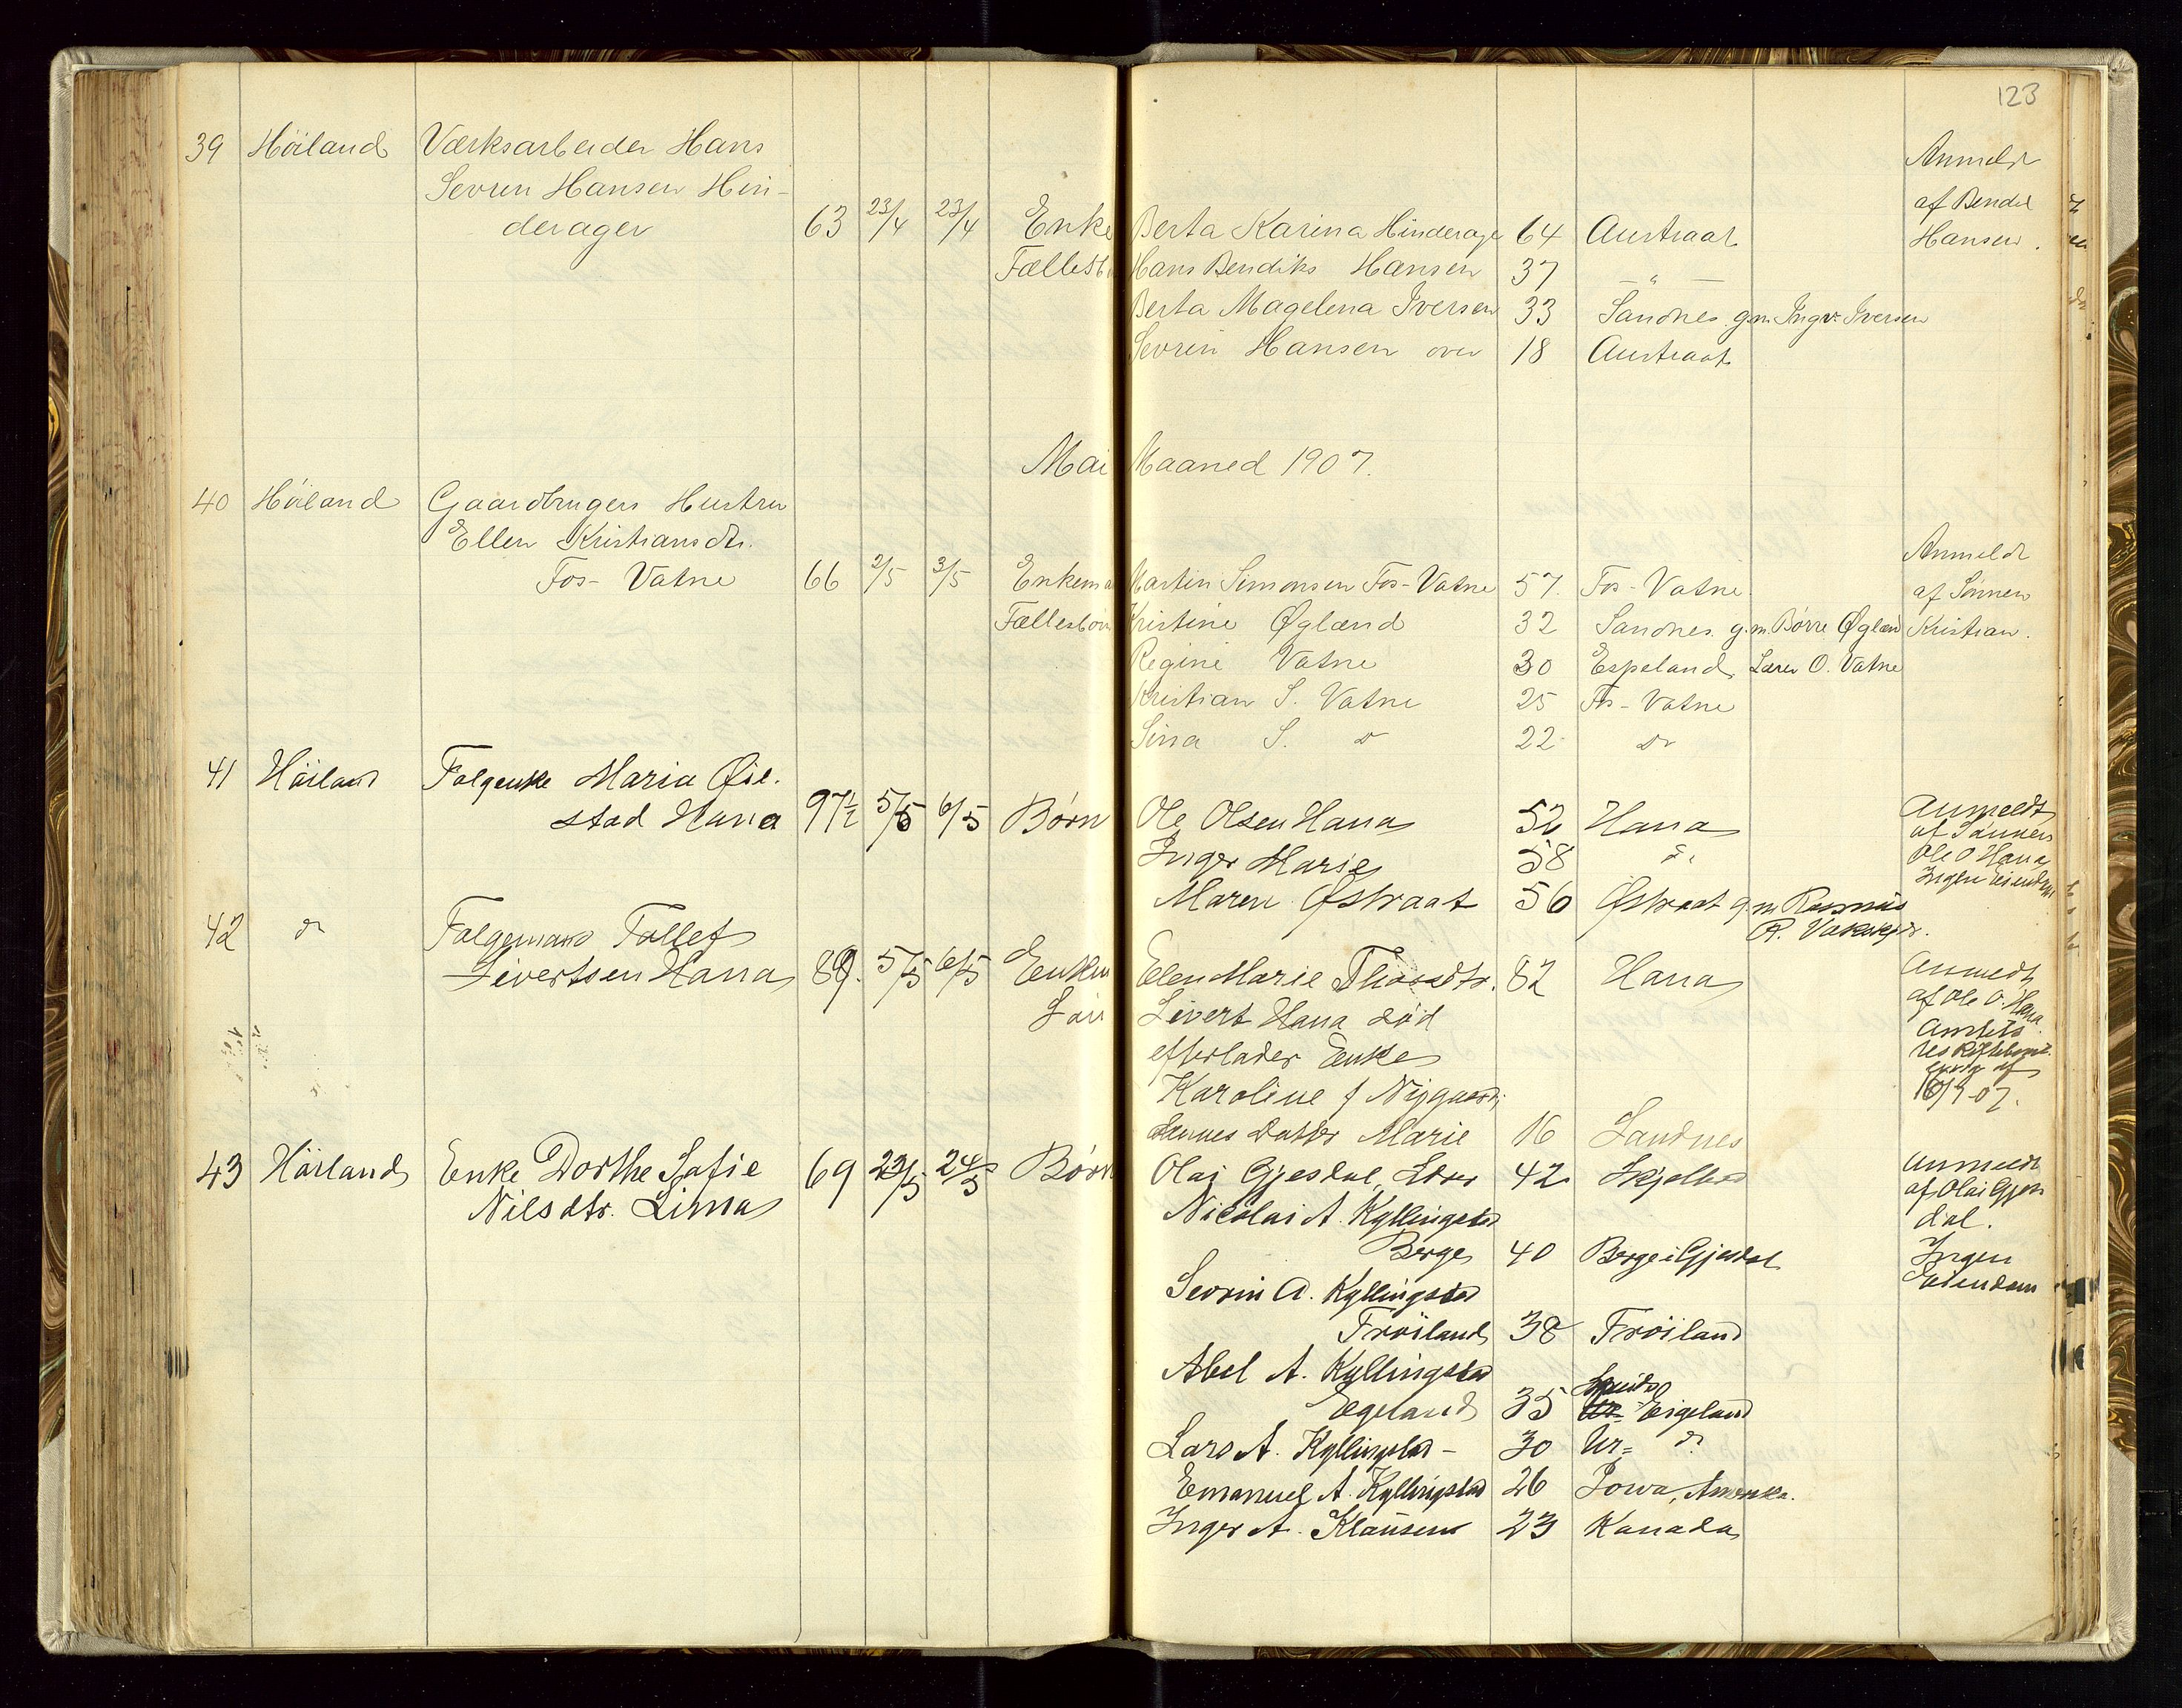 123
39 Höiland Værksarbeider Hans
Sevrin Hansen Hin-
derager 63 23/4 23/4 Enke Berta Karina Hinderage 64 Austraat Anmeldt af Bendik Hansen.
Fælles Hans Bendiks Hansen 37 — " —
Berta Magelena Iversen 33 Sandnes g.m. Ingv. Iversen
Sevrin Hansen over 18 Austraat
Mai Maaned 1907.
40 Höiland Gaardbrugers Hustru
Ellen Kristiansdtr.
Fos-Vatne 66 2/5 3/5 Enkem Martin Simonsen Fos-Vatne 57. Fos-Vatne. Anmeldt af Sönnen Kristian.
Fællesbörn Kristine Øgland 32 Sandnes. g.m. Börre Øglan
Regine Vatne 30 Espeland, Lærer O. Vatne
Kristian S. Vatne 25 Fos-Vatne
Sina S. do 22 do
41 Höiland Folgenke Maria Øse-
stad Hana 97½ 5/5 6/5 Børn Ole Olsen Hana 52 Hana Anmeldt af Sønnen Ole O Hana Ingen Eiendom
Inger Marie 58 do.
Maren Østraat 56 Østraat g.m. Rasmus
42 do Folgemand Tollef
Sivertsen Hana 89. 5/5 6/5 Enkem Elen Marie 82 Hana Anmeldt af Ole O. Hana.
Søn Sivert Hana død
efterlader Enke
Karoline f Nygaard;
dennes Datter Marie 16 Sandnes
16/5 07.
43 Höiland Enke Dorthe Sofie 69 23/5 24/5 Børn Olai Gjesdal, 42 Skjelbred Anmeldt af Olai Gjes dal. Ingen Eiendom
Nilsdtr. Lima Nicolai A. Kyllingstad
Berge 40 Berge i Gjesdal
Sevrin A. Kyllingstad
Fröiland 38 Fröiland
Abel A. Kyllingstad
Egeland 35 Eigeland
Lars A. Kyllingstad - 30 Ur= do.
Emanuel A. Kyllingstad 26 Iowa, Amerika.
Inger A. Klausen 23 Kanada